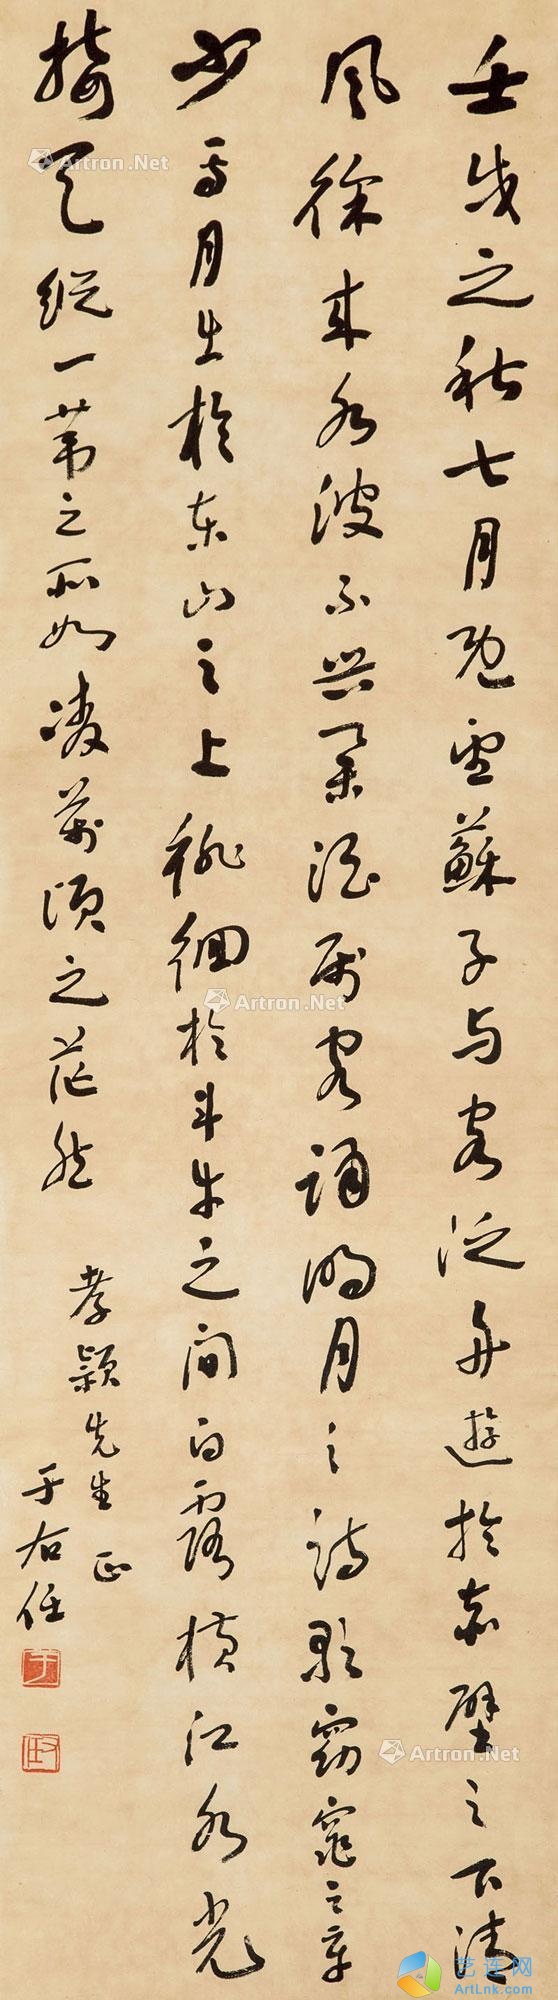 壬戌之秋七月既望蘇子与客泛舟遊於赤壁之下清
风徐来水波不兴举酒属客诵明月之诗歌窈窕之章
少焉月出於东山之上徘徊於斗牛之间白露横江水光
接天纵一苇之所如凌萬顷之茫然
孝颖先生正
于右任
Artron.Net
Artron.Net
Artron.Net
Artron.Net
Artron.Net
艺连网
ArtLnk.com